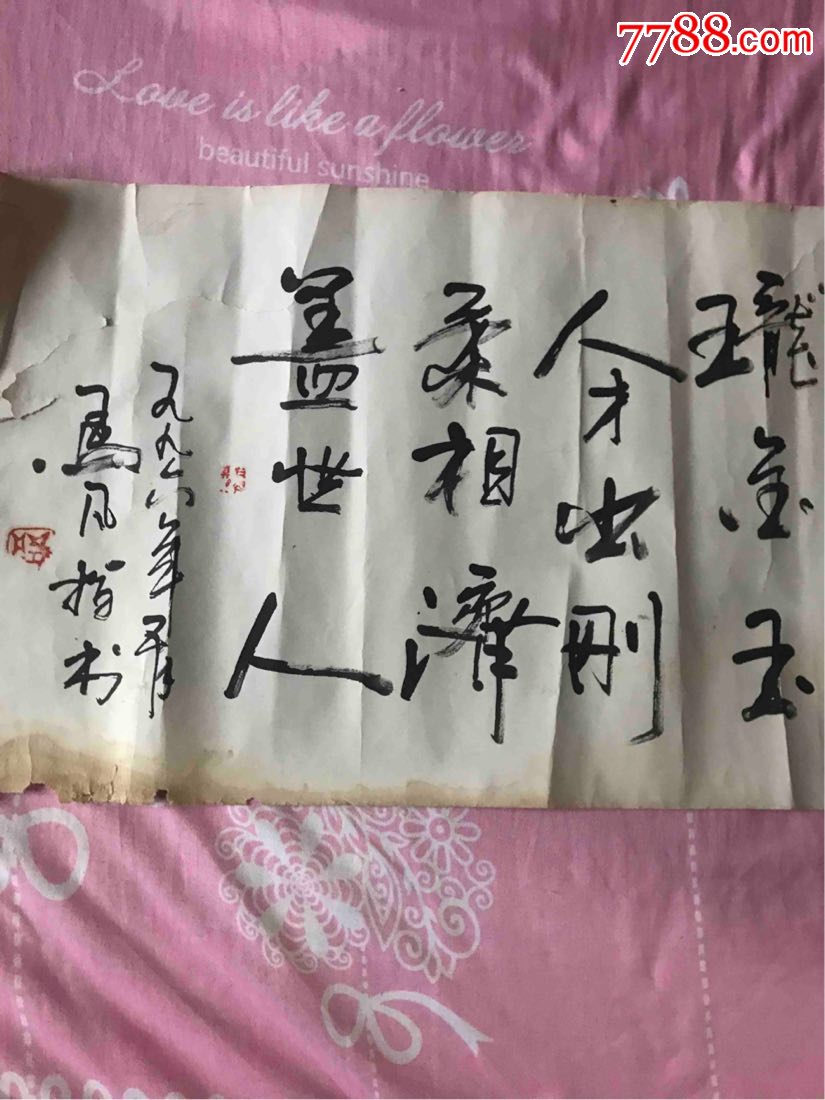 7788.com
Love is like a flower
beautiful sunshine
瓏金玉
人才出刚
柔相濟
盖世人
一九九六年春
马凡指书